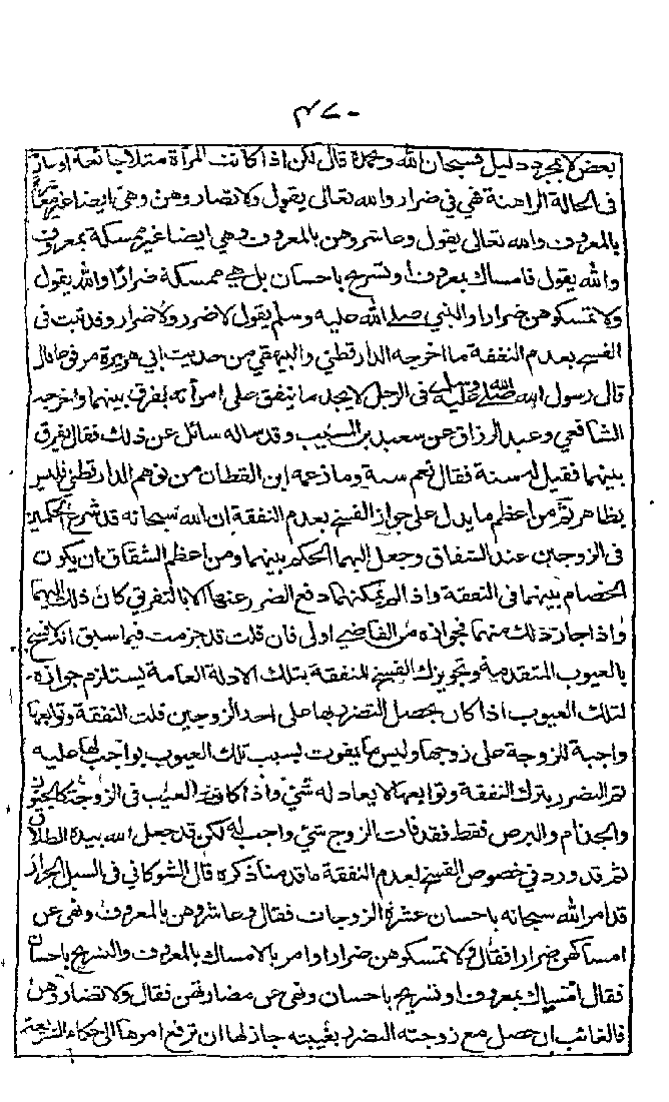 ٤٧٠
بعض لا بمجرد دليل فسبحان الله وبحمده قال لكن اذا كانت المرأة مثلا جائعة او
فى الحالة الراهنة فهي في ضرار والله تعالى يقول ولا تضاروهن وهى ايضا غير
بالمعروف والله تعالى يقول وعاشروهن بالمعروف وهي ايضا غير ممسكة بمعروف
والله يقول فامساك بمعروف او تسريح باحسان بل هي ممسكة ضرارا والله يقول
ولا تمسكوهن ضرارا والنبي صلى الله عليه وسلم يقول لا ضرر ولا ضرار وقد ثبت فى
الفسخ بعدم النفقة ما اخرجه الدارقطني والبيهقي من حديث ابي هريرة مرفوعا قال
قال رسول الله صلى الله عليه وسلم فى الرجل لا يجد ما ينفق على امرأته يفرق بينهما واخرجه
الشافعي وعبد الرزاق عن سعيد بن المسيب وقد ساله سائل عن ذلك فقال يفرق
بينهما فقيل له سنة فقال نعم سنة وما زعمه ابن القطان من توهم الدارقطني فليس
بظاهر ثم من اعظم ما يدل على جواز الفسخ بعدم النفقة ان الله سبحانه قد شرع الحكمين
فى الزوجين عند الشقاق وجعل اليهما الحكم بينهما ومن اعظم الشقاق ان يكون
الخصام بينهما فى النفقة واذا لم يمكنهما دفع الضرر عنها الا بالتفريق كان ذلك اليهما
واذا جاز ذلك منهما فجوازه من القاضي اولى فان قلت قد جزمت فيما سبق انه لا فسخ
بالعيوب المتقدمة وتجويزك الفسخ للنفقة بتلك الادلة العامة يستلزم جوازه
لتلك العيوب اذا كان يحصل التضرر بها على احد الزوجين قلت النفقة وتوابعها
واجبة للزوجة على زوجها وليس ما يفوت بسبب تلك العيوب بواجب لها عليه
ثم التضرر بترك النفقة وتوابعها لا يعادله شئ واذا كان العيب فى الزوجة كالجنون
والجذام والبرص فقط فقد فات الزوج شئ واجب له لكن قد جعل الله بيده الطلاق
ثم قد ورد في خصوص الفسخ لعدم النفقة ما قدمنا ذكره قال الشوكاني فى السيل الجرار
قد امر الله سبحانه باحسان عشرة الزوجات فقال وعاشروهن بالمعروف ونهى عن
امساكهن ضرارا فقال ولا تمسكوهن ضرارا وامر بالامساك بالمعروف والتسريح باحسان
فقال امساك بمعروف او تسريح باحسان ونهى عن مضارتهن فقال ولا تضاروهن
فالغائب ان حصل مع زوجته التضرر بغيبته جاز لها ان ترفع امرها الى حكام الشريعة